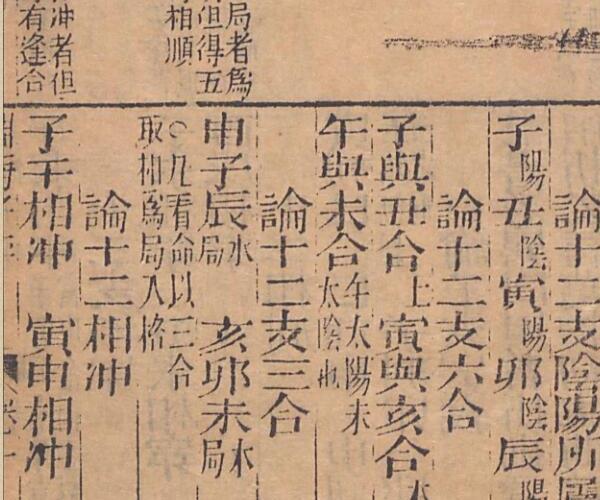 局者爲
但得五
相順
冲者但
有逢合
論十二支陰陽所屬
子陽丑陰寅陽卯陰辰陽
論十二支六合
子與丑合土寅與亥合木
午與未合午太陽未太陰也
論十二支三合
申子辰水局 亥卯未木局
○凡看命以三合
取相爲局入格
論十二相冲
子午相冲 寅申相冲